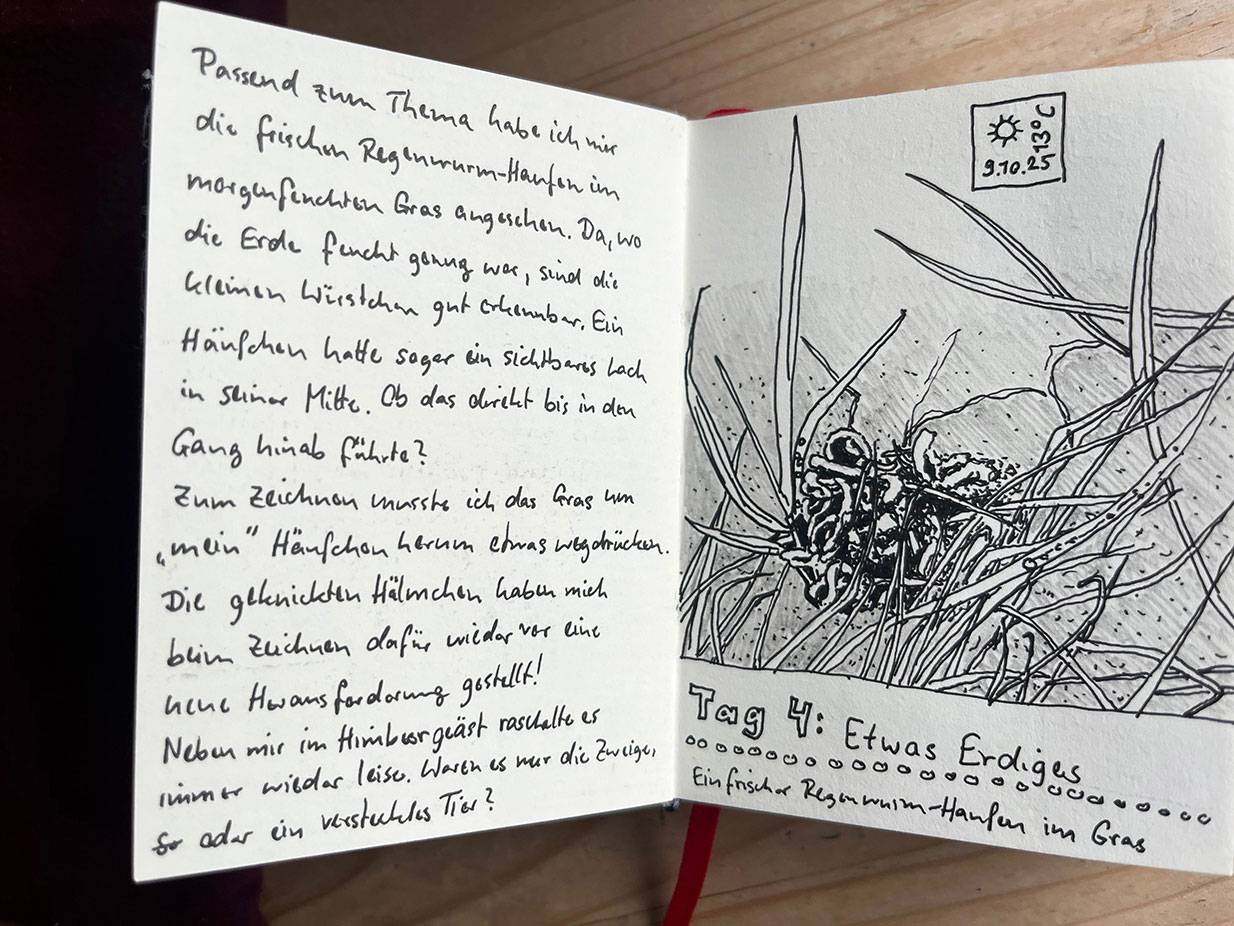 Passend zum Thema habe ich mir
die frischen Regenwurm-Haufen im
morgenfeuchten Gras angesehen. Da, wo
die Erde feucht genug war, sind die
kleinen Würstchen gut erkennbar. Ein
Häufchen hatte sogar ein sichtbares Loch
in seiner Mitte. Ob das direkt bis in den
Gang hinab führte?
Zum Zeichnen musste ich das Gras um
„mein" Häufchen herum etwas wegdrücken.
Die geknickten Hälmchen haben mich
beim Zeichnen dafür wieder vor eine
neue Herausforderung gestellt!
Neben mir im Himbeergeäst raschelte es
immer wieder leise. Waren es nur die Zweige,
oder ein verstecktes Tier?
13°C
9.10.25
Tag 4: Etwas Erdiges
Ein frischer Regenwurm-Haufen im Gras